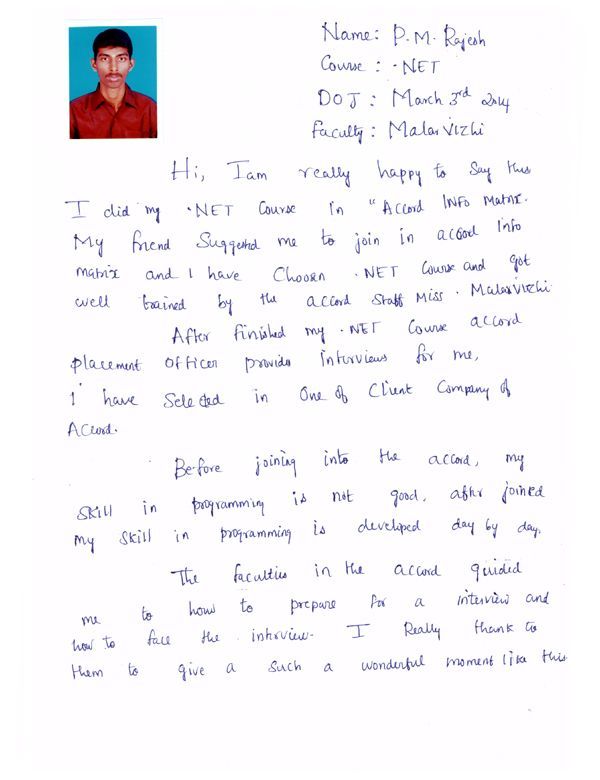 Name: P.M. Rajesh
Course: .NET
DOJ: March 3rd 2014
Faculty: Malar Vizhi
Hi, I am really happy to say this
I did my .NET Course in "Accord INFO Matrix.
My friend Suggested me to join in accord Info
matrix and I have Choosn .NET Course and got
well trained by the accord staff Miss. Malar Vizhi
After finished my .NET Course accord
placement officer provids Interviews for me,
I have Selected in One of Client Company of
Accord.
Before joining into the accord, my
skill in programming is not good, after joined
my skill in programming is developed day by day.
The faculties in the accord guided
me to how to prepare for a interview and
how to face the interview. I Really thank to
them to give a such a wonderful moment like this